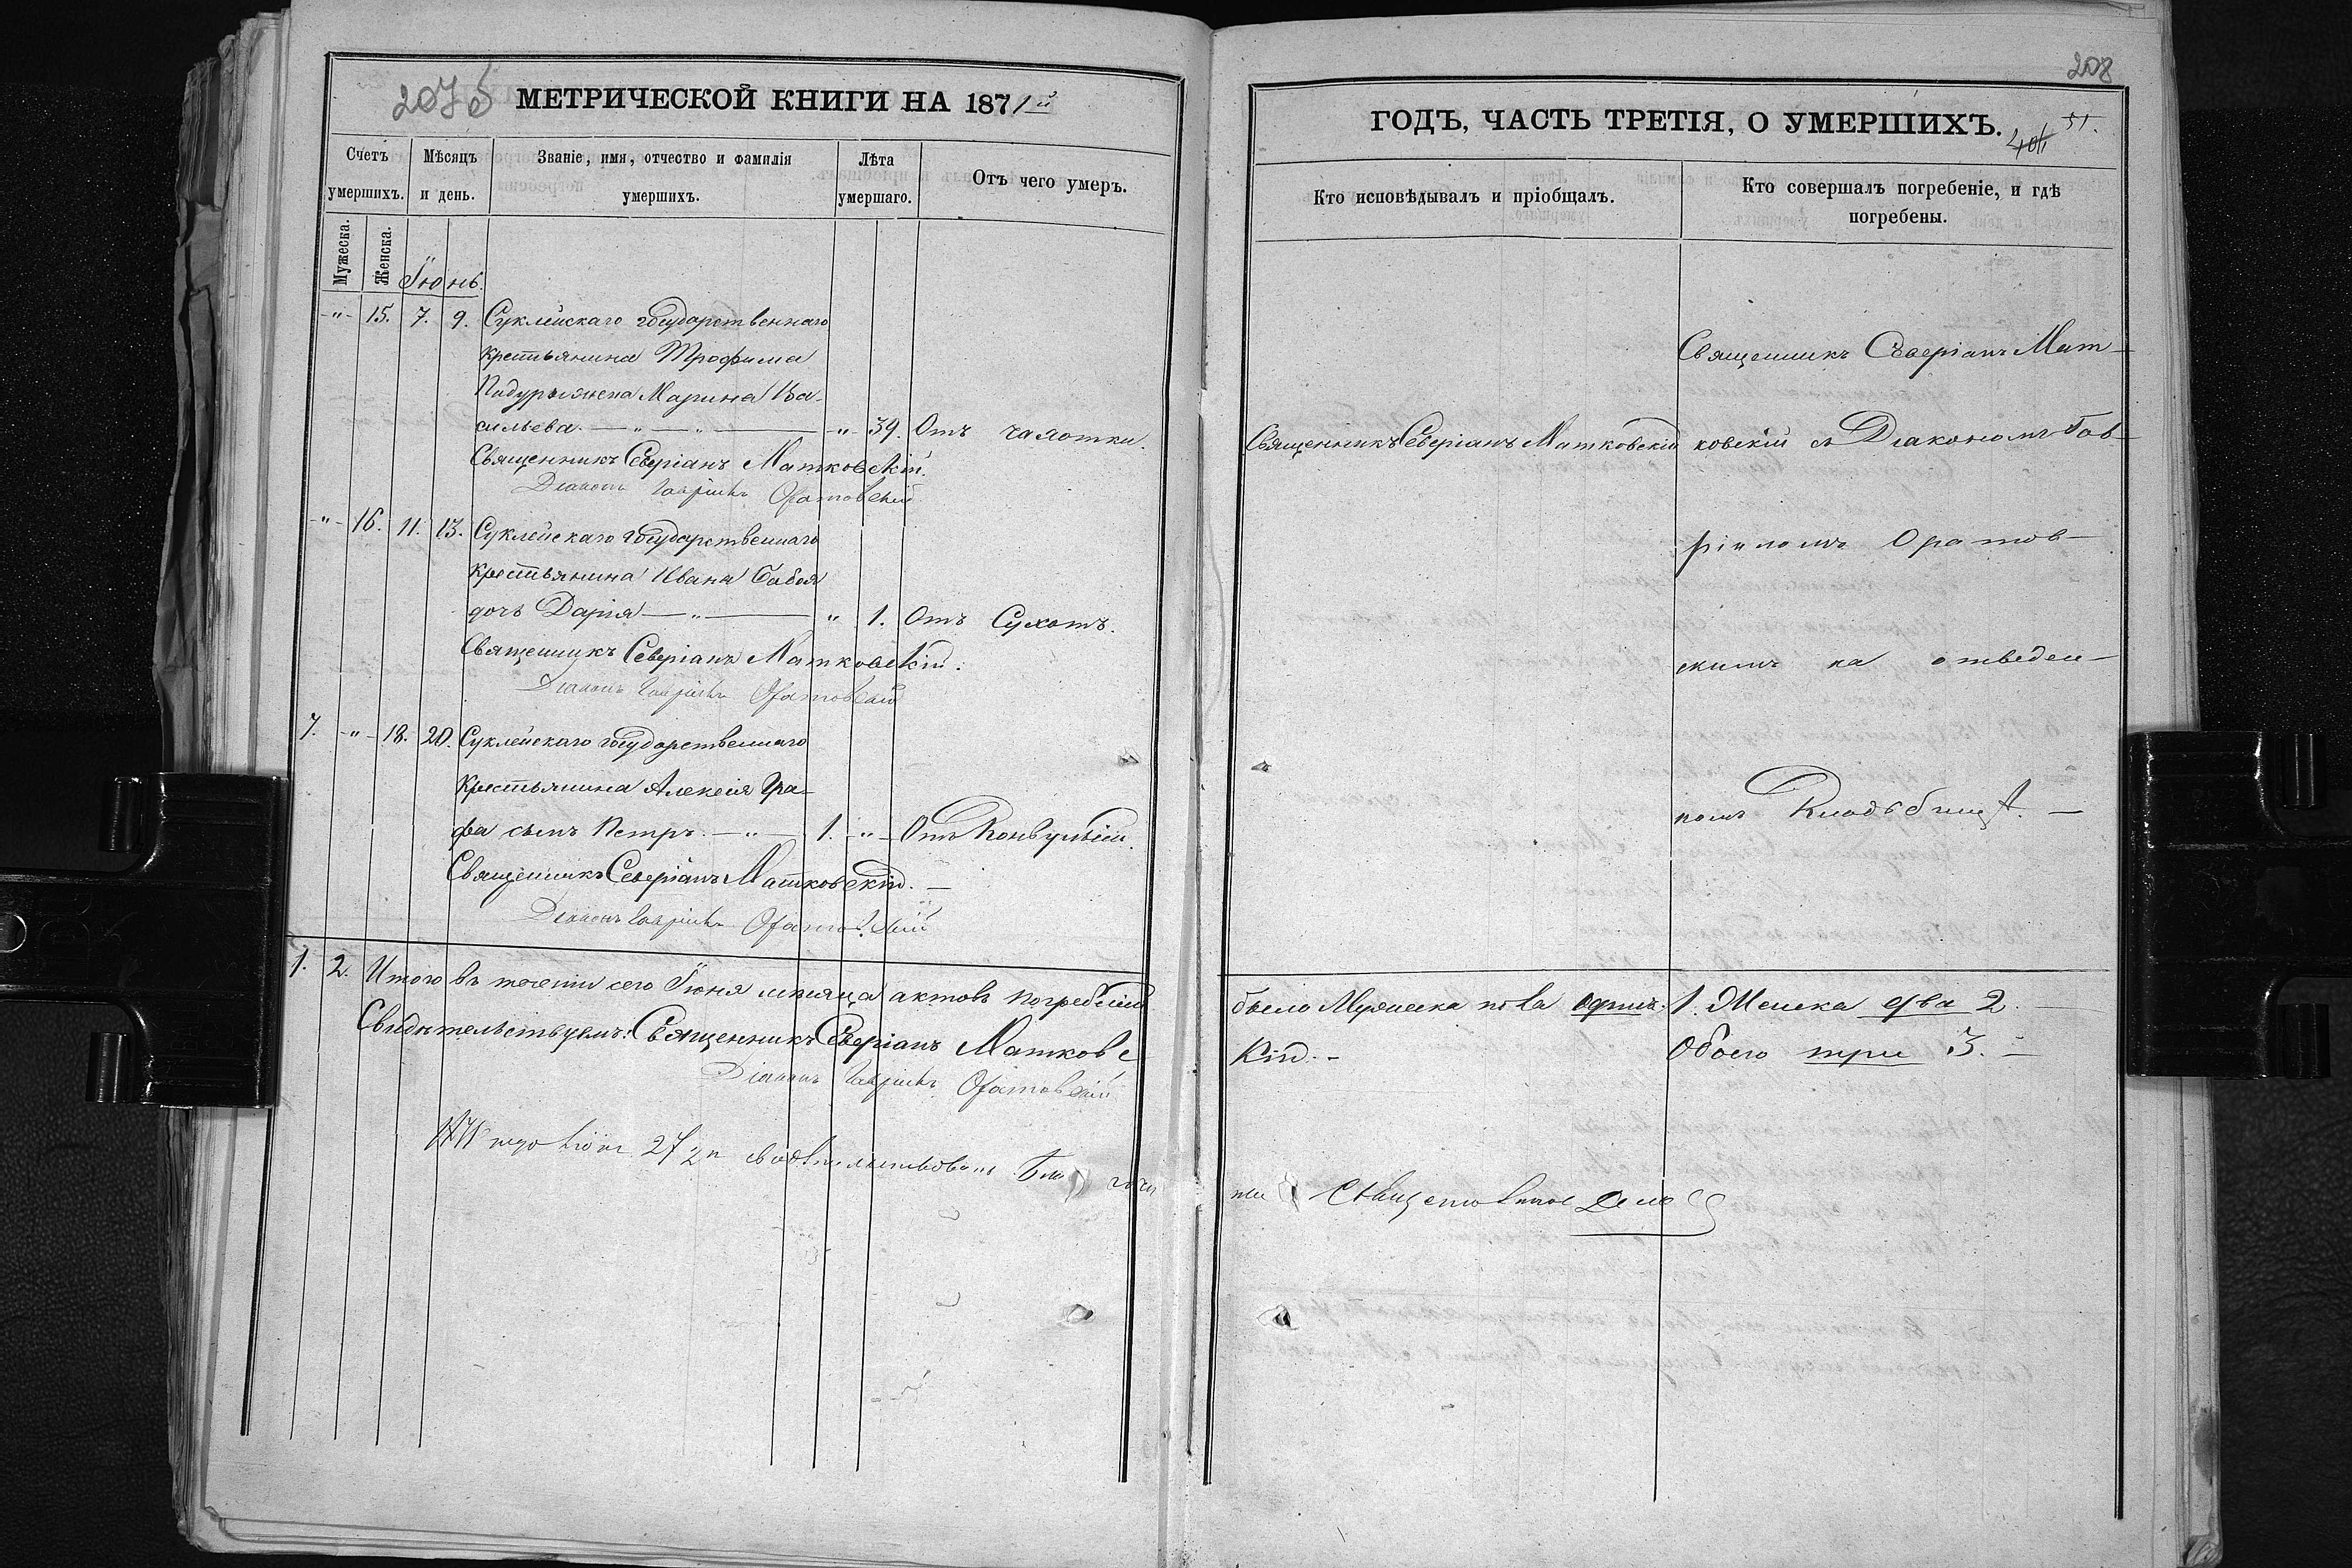 207 б МЕТРИЧЕСКОЙ КНИГИ НА 1871й
Счетъ умершихъ.
Мѣсяцъ и день.
Званіе, имя, отчество и фамилія умершихъ.
Лѣта умершаго.
Отъ чего умеръ.
Мужеска.
Женска.
Іюнь.
-"- 15. 7. 9. Суклейскаго государственнаго
крестьянина Трофима
Марина Ва-
сильева. — " — " — -"- 39. Отъ чахотки.
Священникъ Северіанъ Матковскій.
Діаконъ Гавріилъ Оратовскій
-"- 16. 11. 13. Суклейскаго государственнаго
крестьянина Ивана Бабоя
дочь Дарія — " — " 1. Отъ Сухотъ.
Священникъ Северіанъ Матковскій.
Діаконъ Гавріилъ Оратовскій
7. -"- 18. 20. Суклейскаго государственнаго
крестьянина Алексія Гра-
фа сынъ Петръ. — " — 1. -"- Отъ Конвульсіи.
Священникъ Северіанъ Матковскій. —
Діаконъ Гавріилъ Оратовскій
1. 2. Итого въ теченіи сего Іюня мѣсяца актовъ погребеній
Свидѣтельствуемъ: Священникъ Северіанъ Матковс
Діаконъ Гавріилъ Оратовскій
1871 года Іюля 27 дн свидѣтельствовалъ
208
ГОДЪ, ЧАСТЬ ТРЕТІЯ, О УМЕРШИХЪ.
51.
Кто исповѣдывалъ и пріобщалъ.
Кто совершалъ погребеніе, и гдѣ погребены.
Священникъ Северіанъ Матковскій
Священникъ Северіанъ Мат-
ковскій съ Діакономъ Гав-
ріиломъ Оратов-
скимъ на отведен-
номъ Кладбищѣ. —
было Мужеска пола одинъ. 1. Женска два 2
кій. - Обоего три 3. —